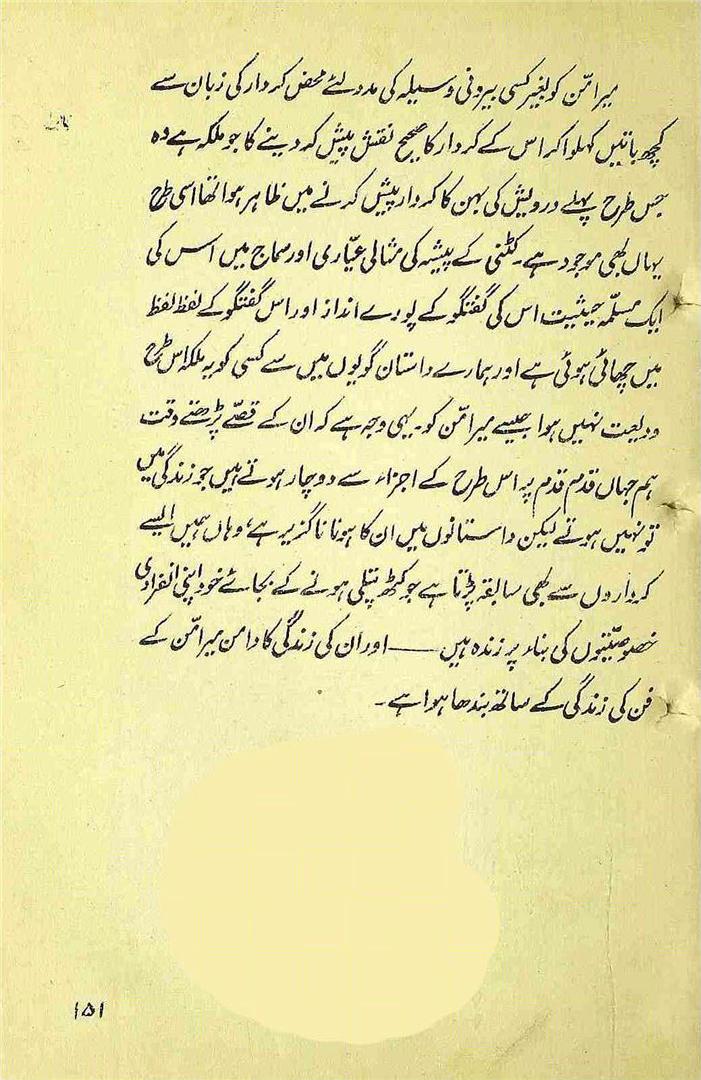 میر امّن کو بغیر کسی بیرونی وسیلہ کی مدد لئے محض کردار کی زبان سے
کچھ باتیں کہلوا کر اس کے کردار کا صحیح نقش پیش کر دینے کا جو ملکہ ہے وہ
جس طرح پہلے درویش کی بہن کا کردار پیش کرنے میں ظاہر ہوا تھا اسی طرح
یہاں بھی موجود ہے۔ کٹنی کے پیشہ کی مثالی عیّاری اور سماج میں اس کی
ایک مسلّمہ حیثیت اس کی گفتگو کے پورے انداز اور اس گفتگو کے لفظ لفظ
میں چھائی ہوئی ہے اور ہمارے داستان گویوں میں سے کسی کو یہ ملکہ اس طرح
ودیعت نہیں ہوا جیسے میر امّن کو۔ یہی وجہ ہے کہ ان کے قصّے پڑھتے وقت
ہم جہاں قدم قدم پر اس طرح کے اجزاء سے دو چار ہوتے ہیں جو زندگی میں
تو نہیں ہوتے لیکن داستانوں میں ان کا ہونا ناگزیر ہے، وہاں ہمیں ایسے
کرداروں سے بھی سابقہ پڑتا ہے جو کٹھ پتلی ہونے کے بجائے خود اپنی انفرادی
خصوصیّتوں کی بناء پر زندہ ہیں —— اور ان کی زندگی کا دامن میر امّن کے
فن کی زندگی کے ساتھ بندھا ہوا ہے۔
۱۵۱